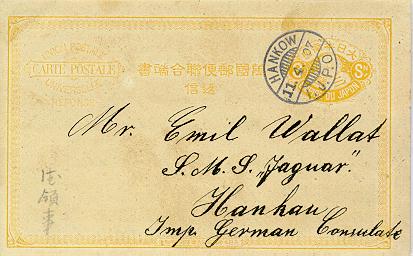 CARTE POSTALE
萬國郵便聯合端書
返信
HANKOW
11. 4. 01
I.J.P.O.
DU JAPON
Mr. Emil Wallat
S. M. S. „Jaguar".
Hankau
Imp. German Consulate
德領事